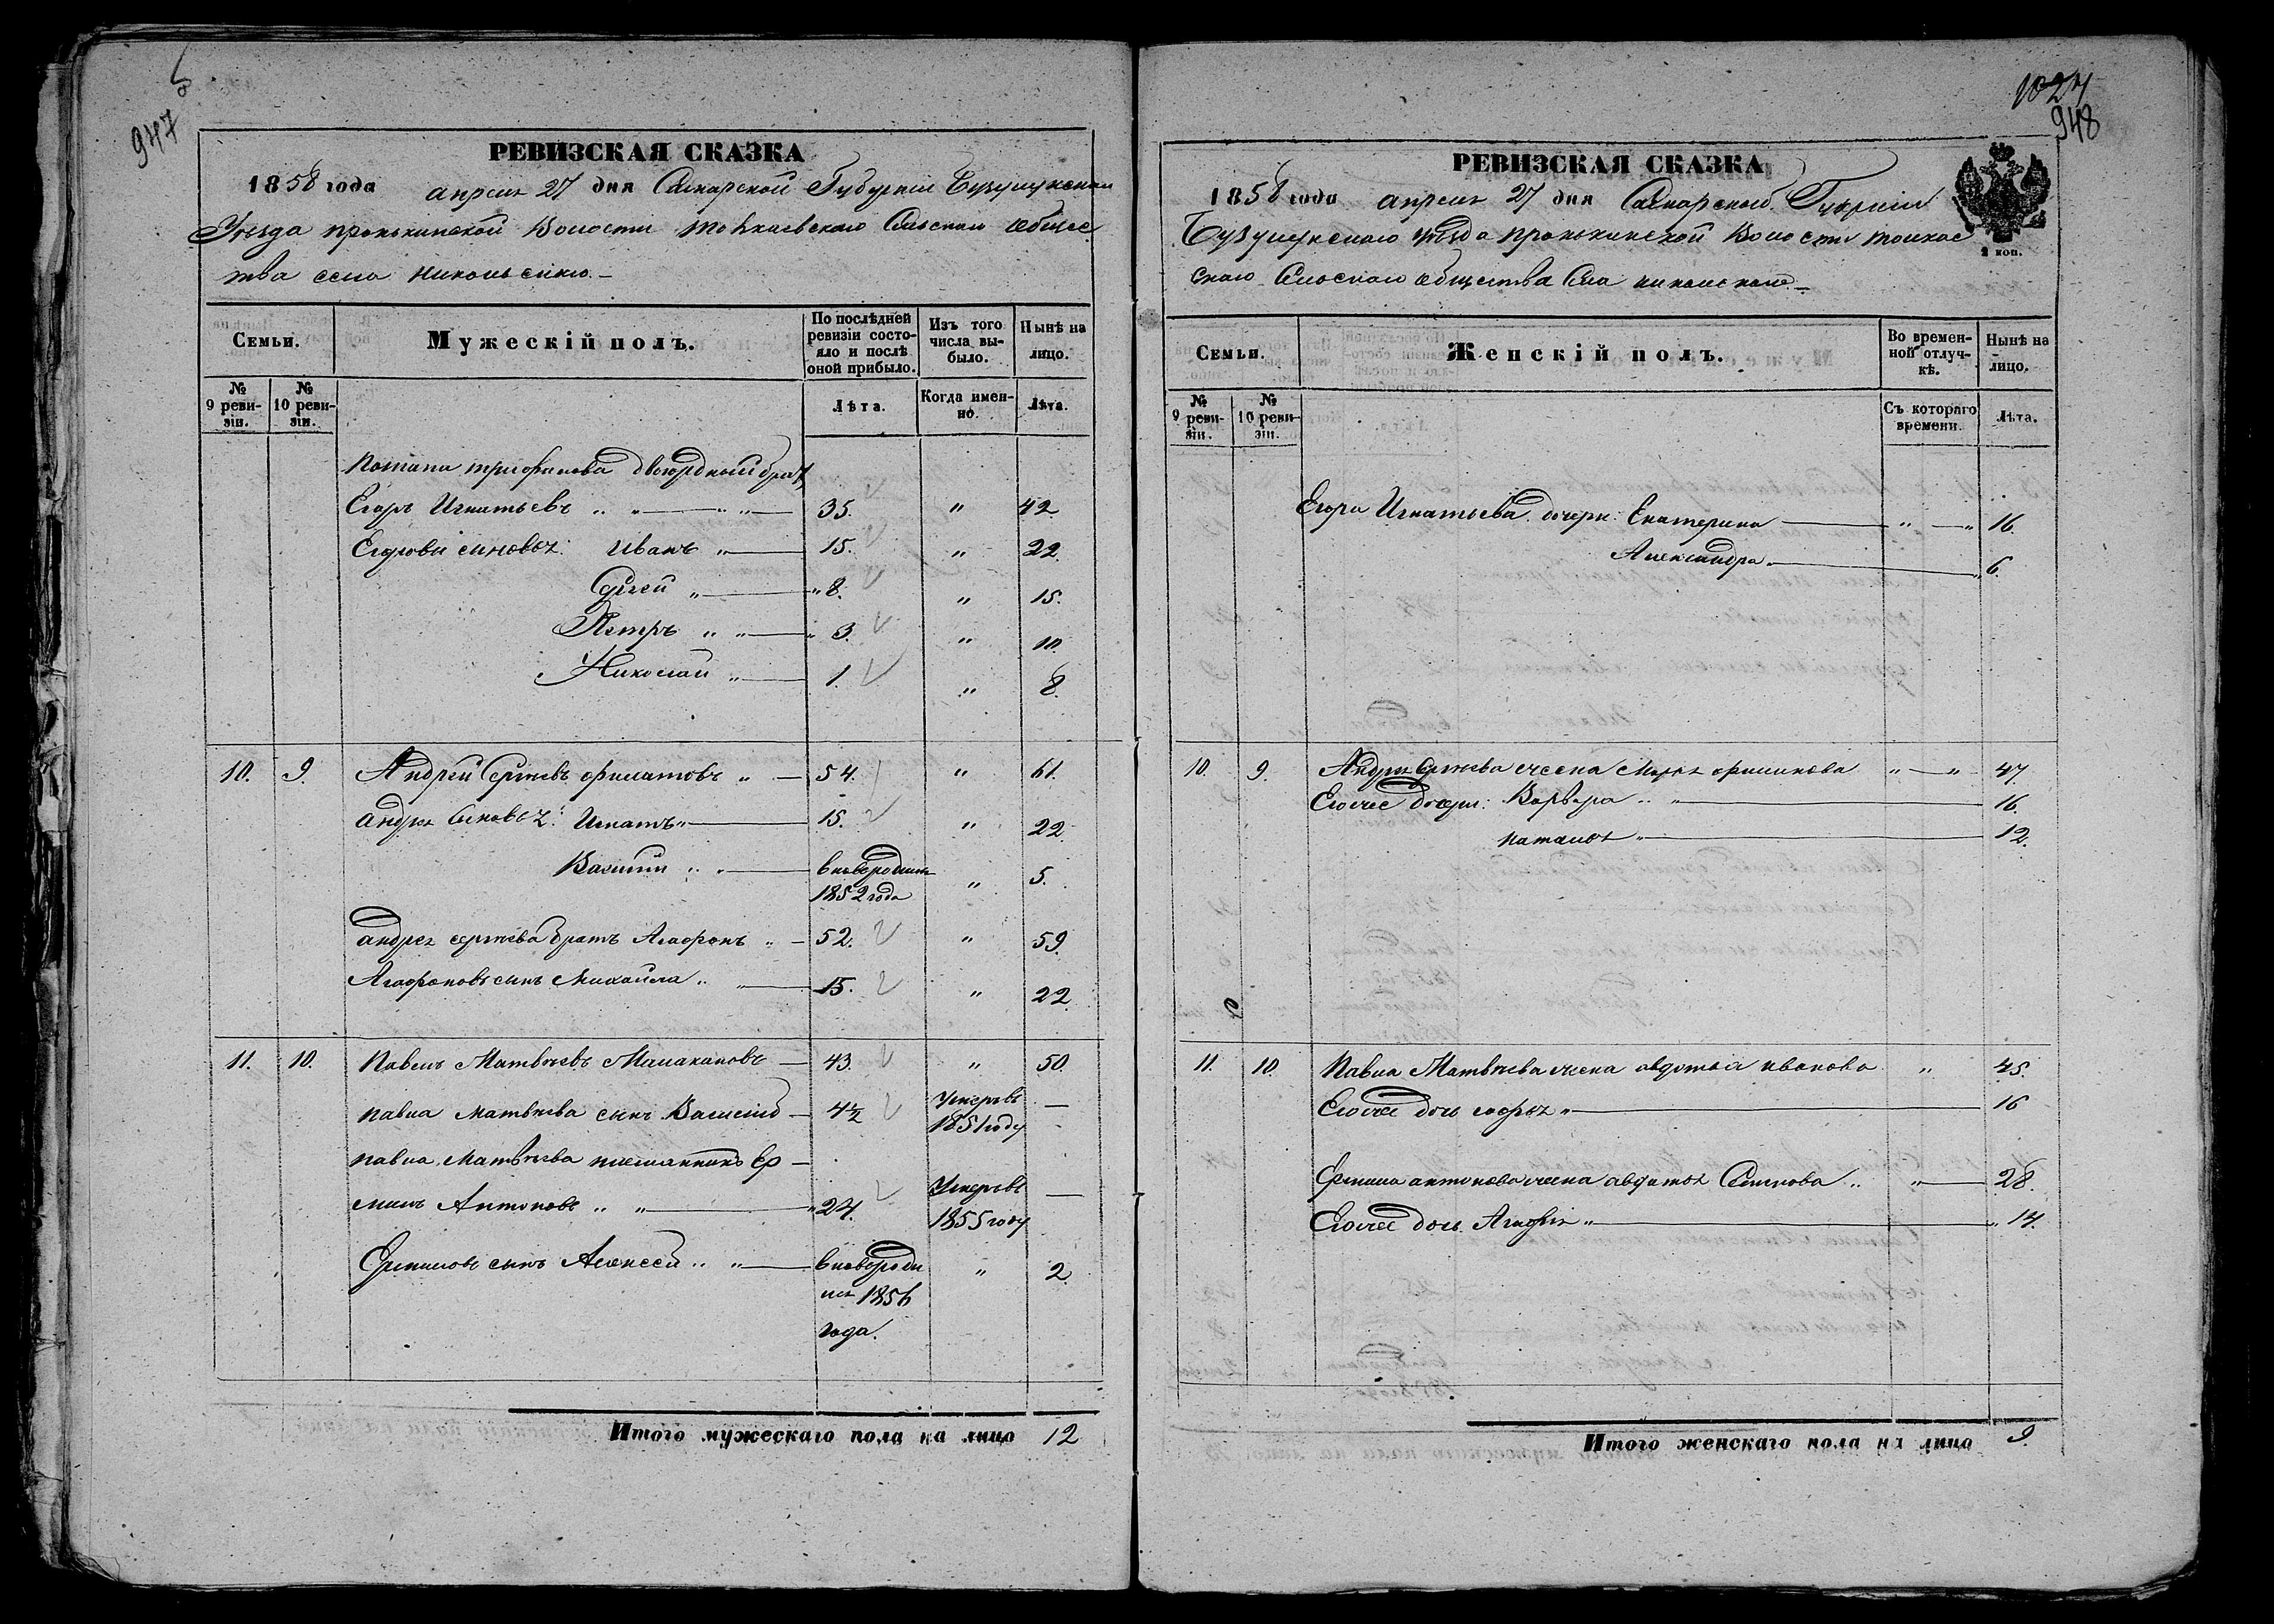 947
РЕВИЗСКАЯ СКАЗКА
1858 года апреля 27 дня Самарской Губернии Бузулукскаго
Уезда пронькинской Волости Сельскаго общес
тва села никольскаго
Семьи.
Мужескій полъ.
По послѣдней ревизіи состояло и послѣ оной прибыло.
Изъ того числа выбыло.
Нынѣ на лицо.
№ 9 ревизіи.
№ 10 ревизіи.
Лѣта.
Когда именно.
Лѣта.
Потапа трифонова двоюродный братъ
Егоръ Игнатьевъ „ „ 35. „ 42.
Егоровы сыновья: Иванъ „ 15. „ 22.
Сергей „ 8. „ 15.
Петръ „ „ 3. „ 10.
Николай „ 1. „ 8.
10. 9. Андрей Сергеевъ филатовъ „ 54. „ 61.
Андрея сыновья: Игнатъ „ 15. „ 22.
Василий „ „ вновьрожден 1852 года „ 5.
андрея сергеева братъ Агафонъ „ 52. „ 59.
Агафоновъ сынъ Михайла „ „ 15. „ 22.
11. 10. Павелъ Матвѣевъ Малахановъ 43. „ 50.
павла матвѣева сынъ Василий 4½ Умеръвъ 1851 году —
павла Матвѣева племянникъ Еф
имъ Антоновъ „ „ 24. Умеръвъ 1855 году —
Ефимовъ сынъ Алексей „ „ вновьроди лся 1856 года. „ 2.
Итого мужескаго пола на лицо 12
1024
948
РЕВИЗСКАЯ СКАЗКА
1858 года апреля 27 дня Самарской Губернии
Бузулукскаго уезда пронькинской Волости
скаго Сельскаго общества Села никольскаго
2 коп.
Семьи.
Женскій полъ.
Во временной отлучкѣ.
Нынѣ на лицо.
№ 9 ревизіи.
№ 10 ревизіи.
Съ котораго времени.
Лѣта.
Егора Игнатьева дочери: Екатерина „ „ 16.
Александра „ „ 6.
10. 9. Андрея Сергеева жена Марья филипова „ „ 47.
Егожее дочери: Варвара „ „ 16.
наталья „ 12.
11. 10. Павла Матвѣева жена авдотья иванова „ 45.
Егожее дочь софья „ 16
Ефима антонова жена авдотья Семенова „ „ 28.
Егожее дочь Агафья „ „ 14.
Итого женскаго пола на лицо 9.